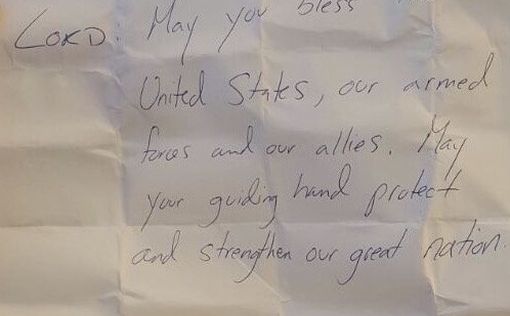 LORD: May you bless
United States, our armed
forces and our allies. May
your guiding hand protect
and strengthen our great nation.